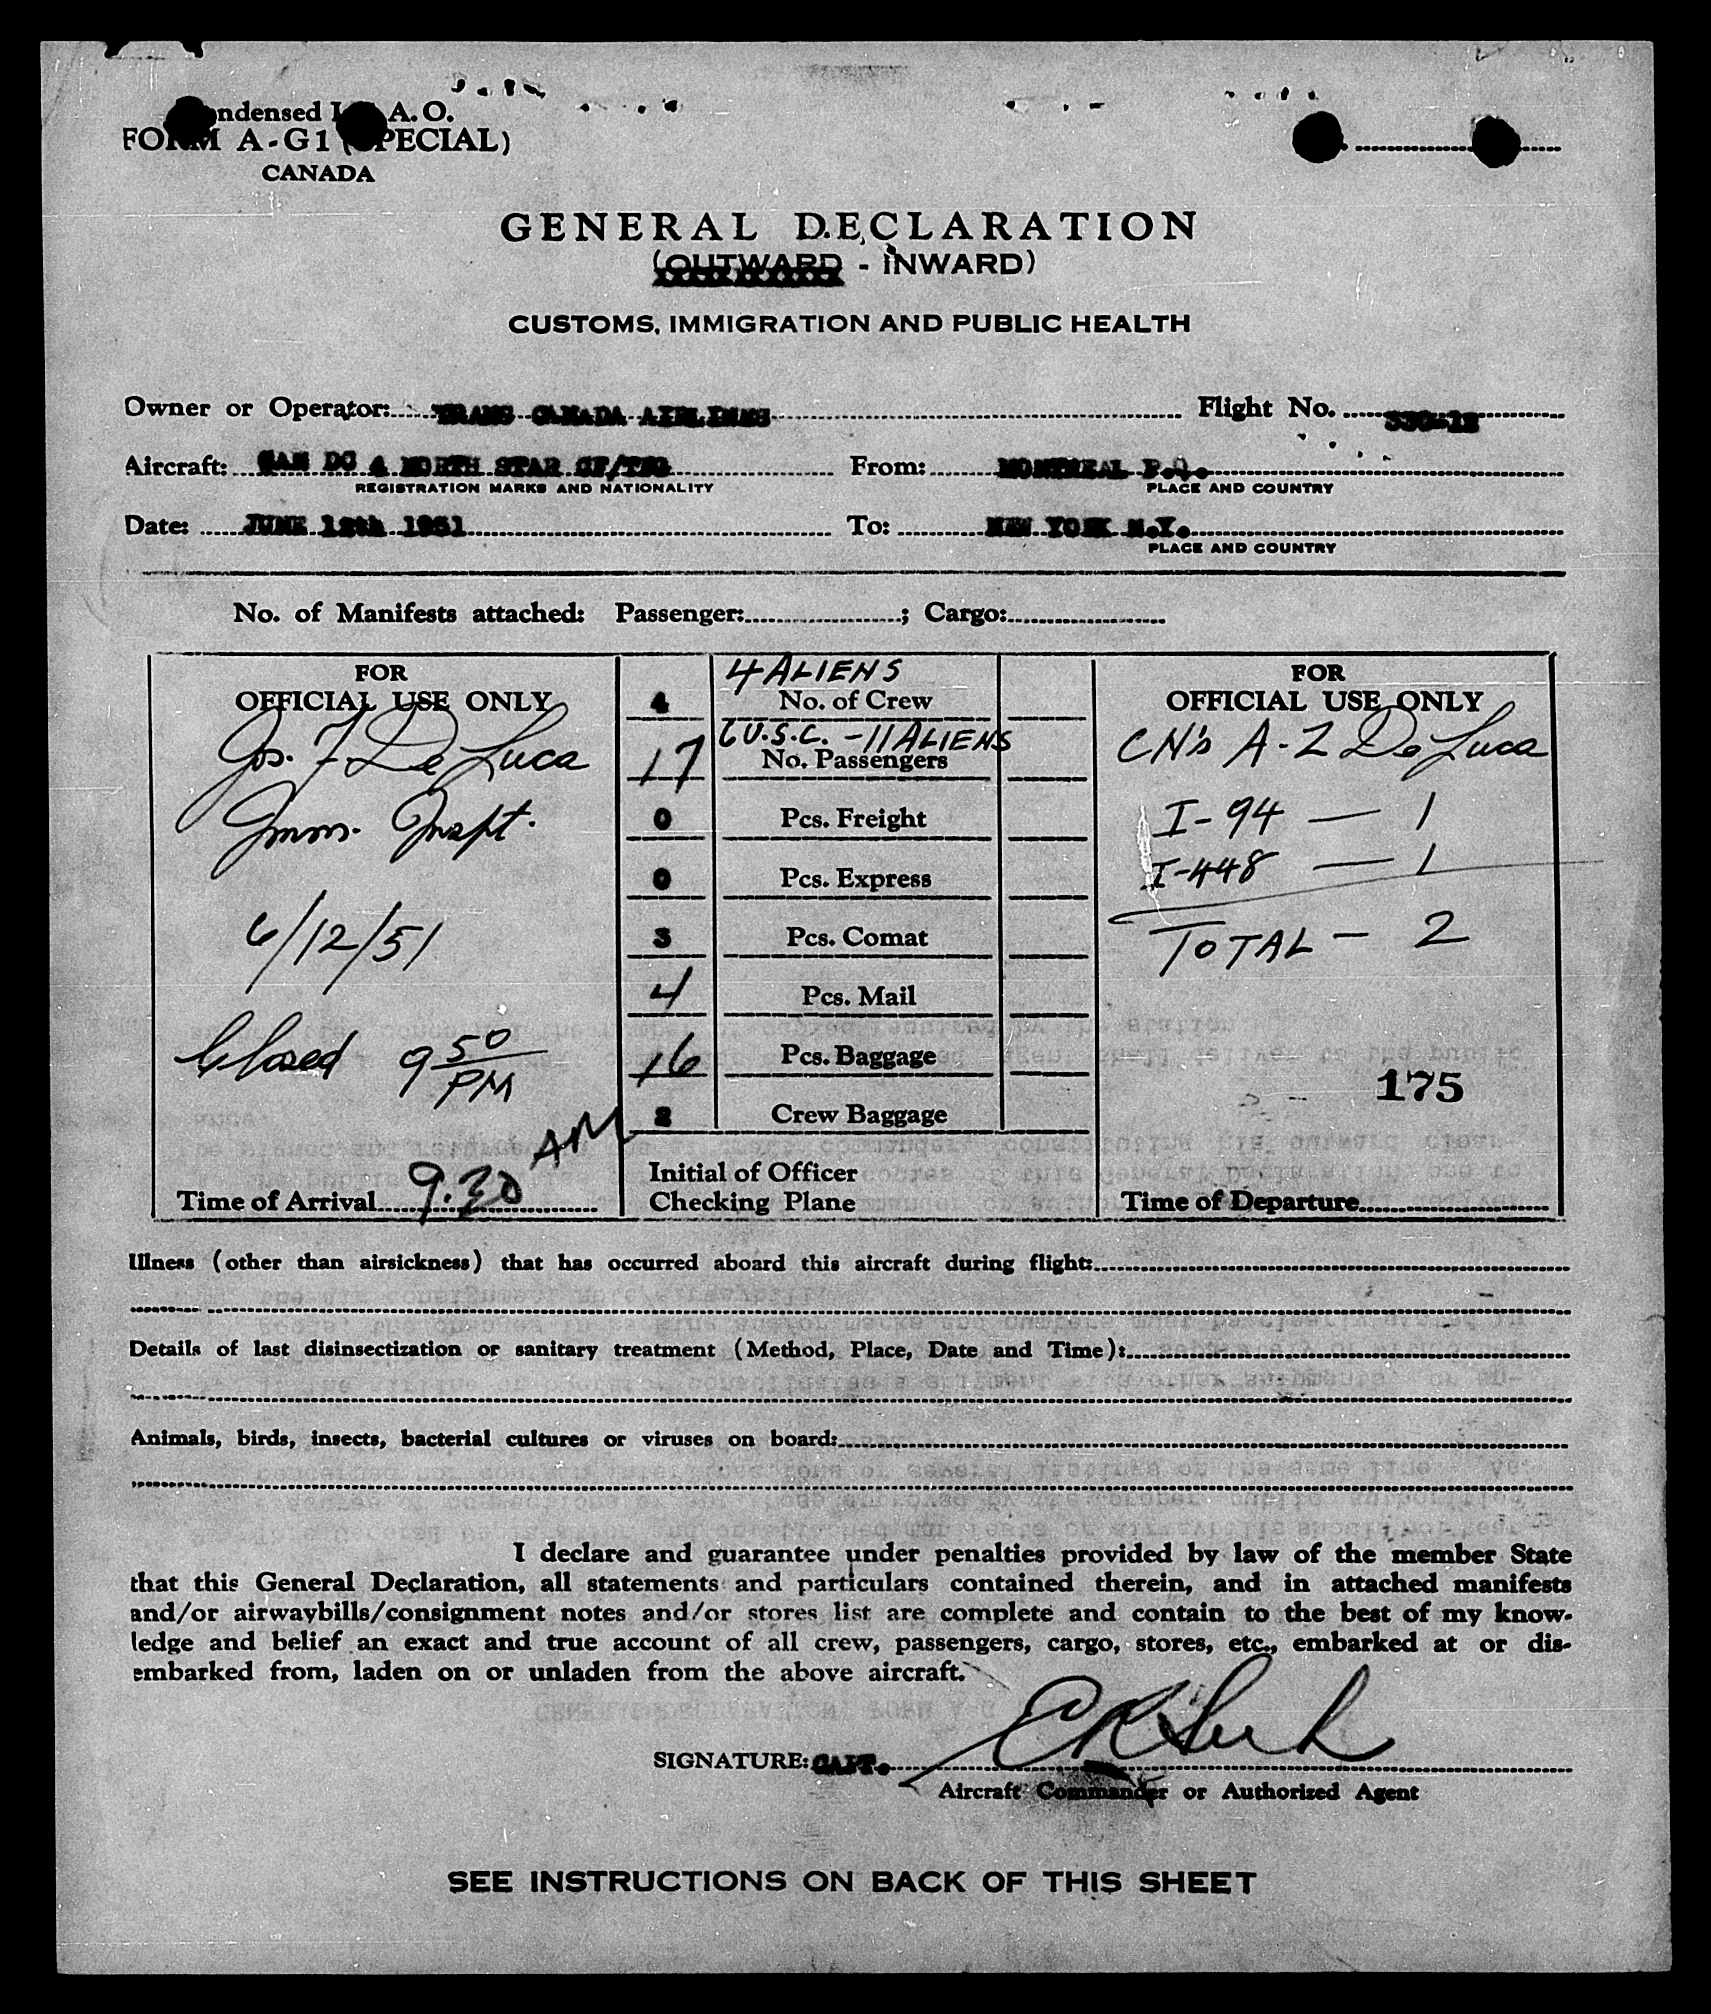 Condensed I.C.A.O.
FORM A-G1 (SPECIAL)
CANADA
GENERAL DECLARATION
(OUTWARD - INWARD)
CUSTOMS, IMMIGRATION AND PUBLIC HEALTH
Owner or Operator: TRANS CANADA AIRLINES Flight No. 530-12
Aircraft: CAN DC 4 NORTH STAR CF/ From: MONTREAL P.Q.
REGISTRATION MARKS AND NATIONALITY PLACE AND COUNTRY
Date: JUNE 12th 1951 To: NEW YORK N.Y.
PLACE AND COUNTRY
No. of Manifests attached: Passenger: ; Cargo:
FOR
OFFICIAL USE ONLY
Jos. F De Luca
Imm. Inspt.
6/12/51
Closed 9 50 PM
Time of Arrival 9.30 AM
4 ALIENS
4 No. of Crew
6 U.S.C. - 11 ALIENS
17 No. Passengers
0 Pcs. Freight
0 Pcs. Express
3 Pcs. Comat
4 Pcs. Mail
16 Pcs. Baggage
2 Crew Baggage
Initial of Officer
Checking Plane
FOR
OFFICIAL USE ONLY
CN's A-Z De Luca
I-94 — 1
I-448 — 1
TOTAL — 2
175
Time of Departure
Illness (other than airsickness) that has occurred aboard this aircraft during flight:
Details of last disinsectization or sanitary treatment (Method, Place, Date and Time):
Animals, birds, insects, bacterial cultures or viruses on board:
I declare and guarantee under penalties provided by law of the member State
that this General Declaration, all statements and particulars contained therein, and in attached manifests
and/or airwaybills/consignment notes and/or stores list are complete and contain to the best of my know-
ledge and belief an exact and true account of all crew, passengers, cargo, stores, etc., embarked at or dis-
embarked from, laden on or unladen from the above aircraft.
SIGNATURE: CAPT.
Aircraft Commander or Authorized Agent
SEE INSTRUCTIONS ON BACK OF THIS SHEET